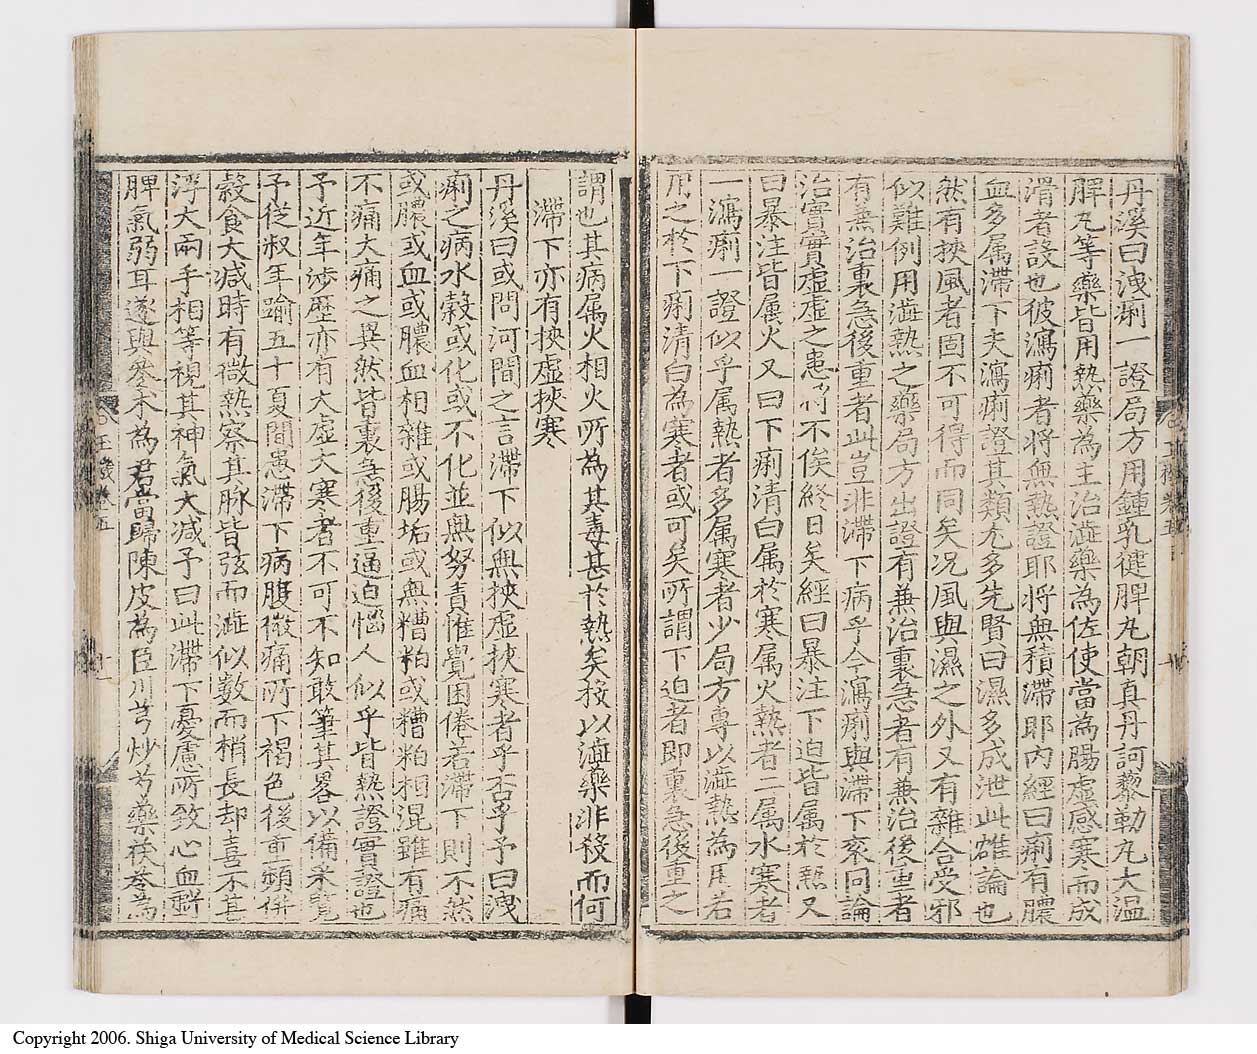 丹溪曰洩痢一證局方用鍾乳健脾丸朝真丹訶黎勒丸大温
脾丸等藥皆用熱藥為主治澁藥為佐使當為腸虛感寒而成
滑者設也彼瀉痢者將無熱證耶將無積滯耶内經曰痢有膿
血多属滯下夫瀉痢證其類尤多先賢曰濕多成泄此雄論也
然有挾風者固不可得而同矣况風與濕之外又有雜合受邪
似難例用澁熱之藥局方出證有兼治裏急者有兼治後重者
有兼治裏急後重者此豈非滯下病乎今瀉痢與滯下衮同論
治實實虛虛之患不俟終日矣經曰暴注下迫皆属於熱又
曰暴注皆属火又曰下痢清白属於寒属火熱者二属水寒者
一瀉痢一證似乎属熱者多属寒者少局方專以澁熱為用若
用之於下痢清白為寒者或可矣所謂下迫者即裏急後重之
謂也其病属火相火所為其毒甚於熱矣投以澁藥非殺而何
滯下亦有挾虛挾寒
丹溪曰或問河間之言滯下似無挾虛挾寒者乎否乎予曰洩
痢之病水穀或化或不化並無努責惟覺困倦若滯下則不然
或膿或血或膿血相雜或腸垢或無糟粕或糟粕相混雖有痛
不痛大痛之異然皆裏急後重逼迫惱人似乎皆熱證實證也
予近年涉歷亦有大虛大寒者不可不知敢筆其畧以備采覧
予從叔年踰五十夏間患滯下病腹微痛所下褐色後重頻併
穀食大减時有微熱察其脉皆弦而澁似数而稍長却喜不甚
浮大兩手相等視其神氣大减予曰此滯下憂慮所致心血虧
脾氣弱耳遂與參术為君當歸陳皮為臣川芎炒芍藥茯苓為
Copyright 2006. Shiga University of Medical Science Library